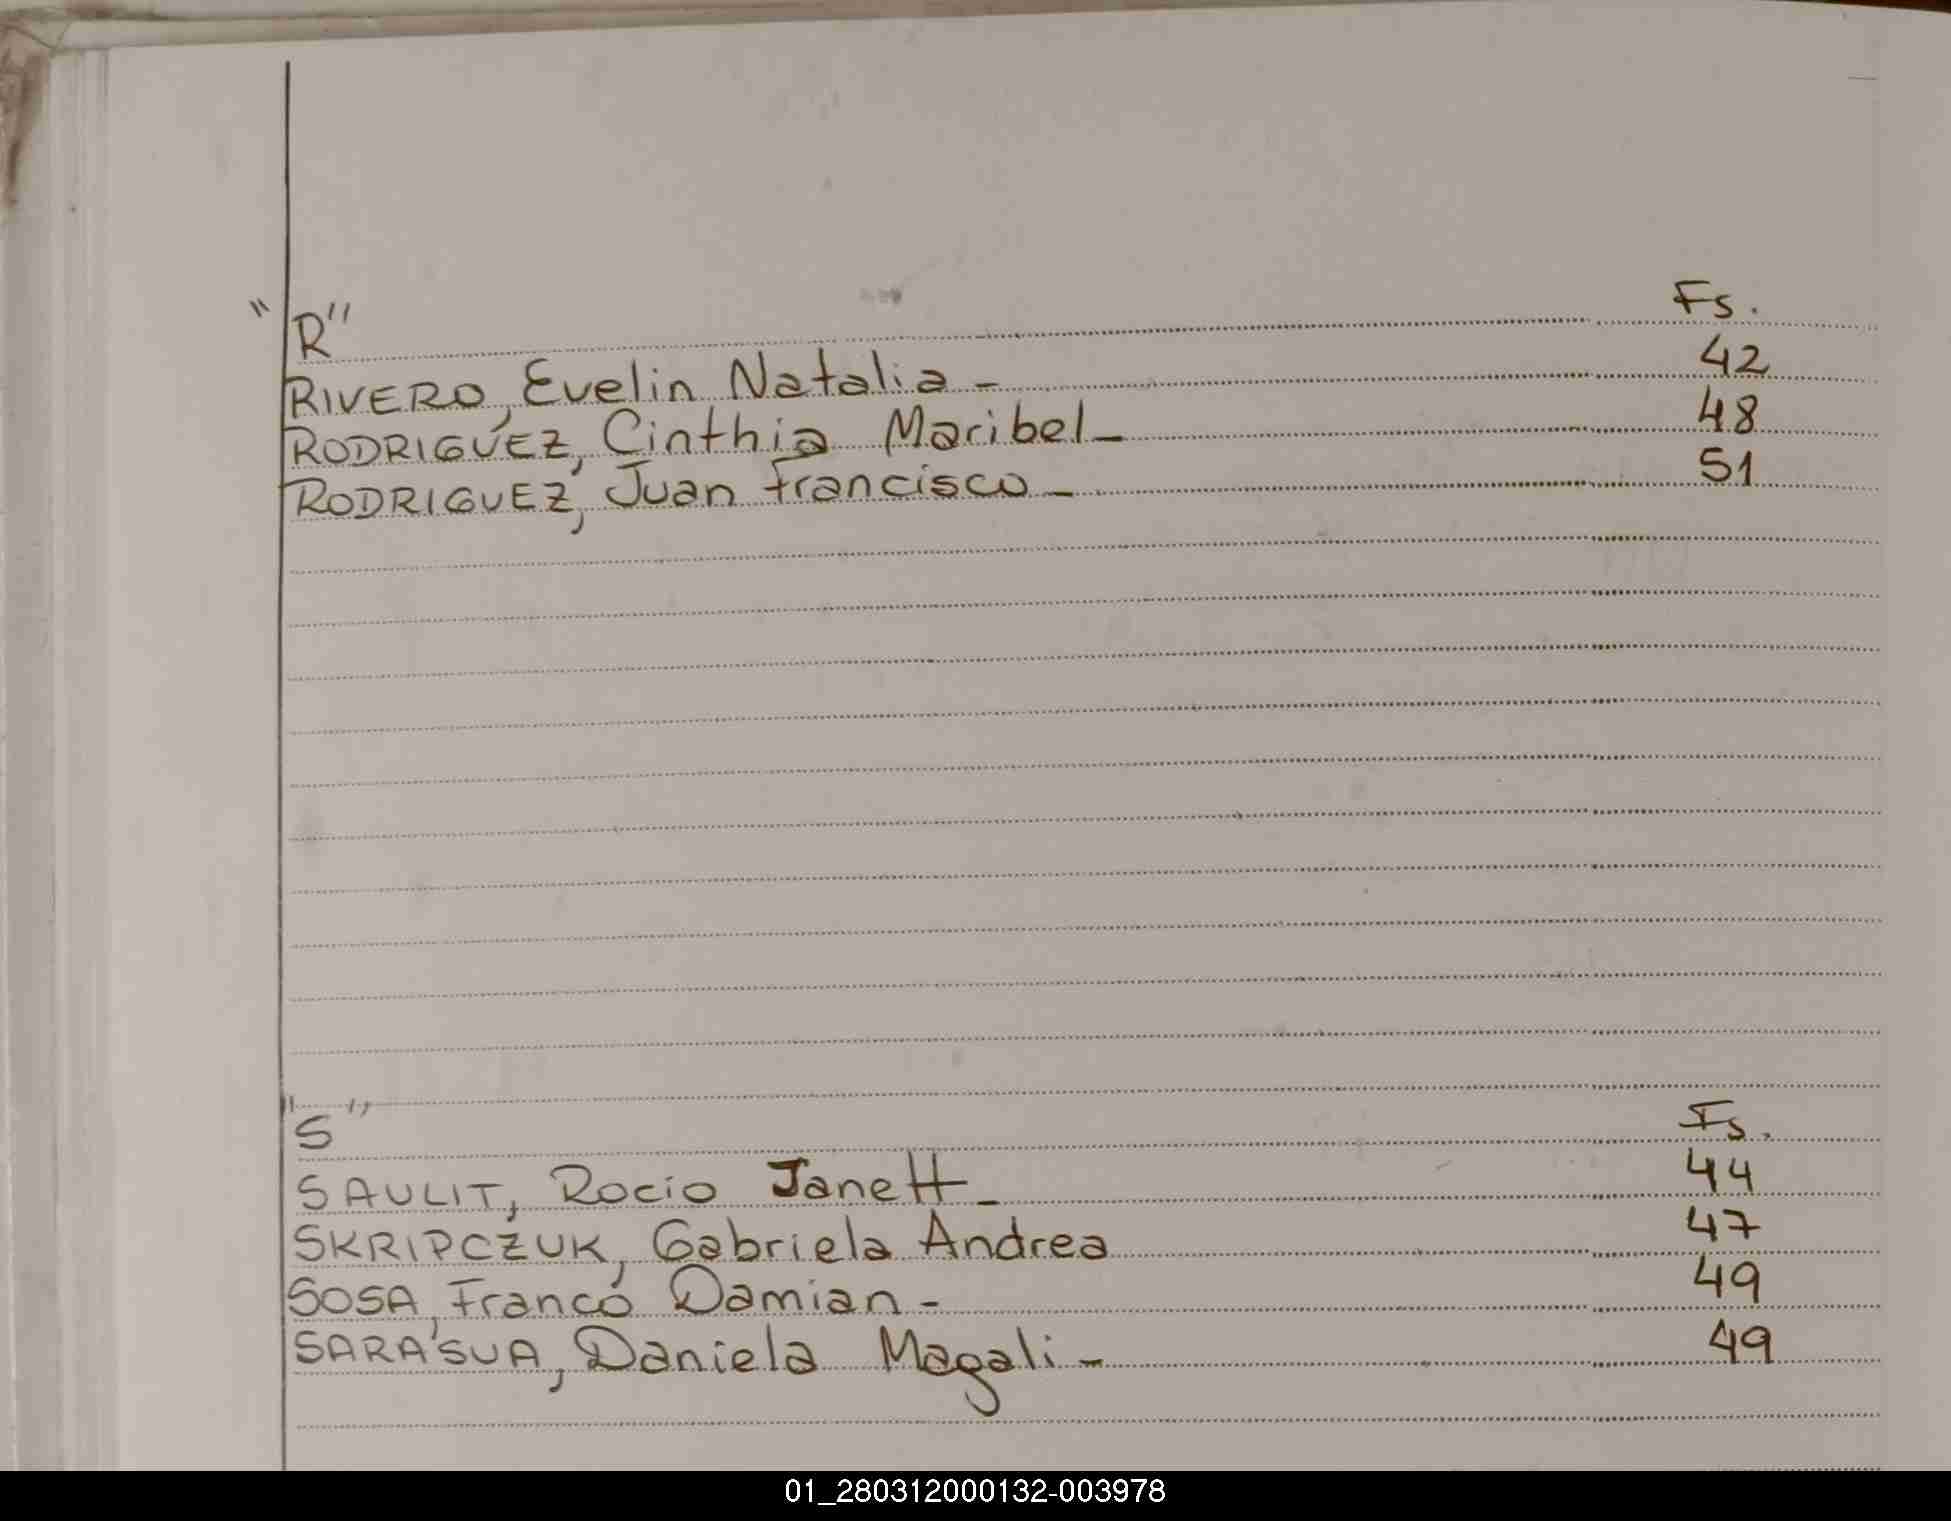 "R" Fs.
RIVERO, Evelin Natalia - 42
RODRIGUEZ, Cinthia Maribel - 48
RODRIGUEZ, Juan Francisco - 51
"S" Fs.
SAULIT, Rocio Janett - 44
SKRIPCZUK, Gabriela Andrea 47
SOSA, Franco Damian - 49
SARASUA, Daniela Magali - 49
01_280312000132-003978